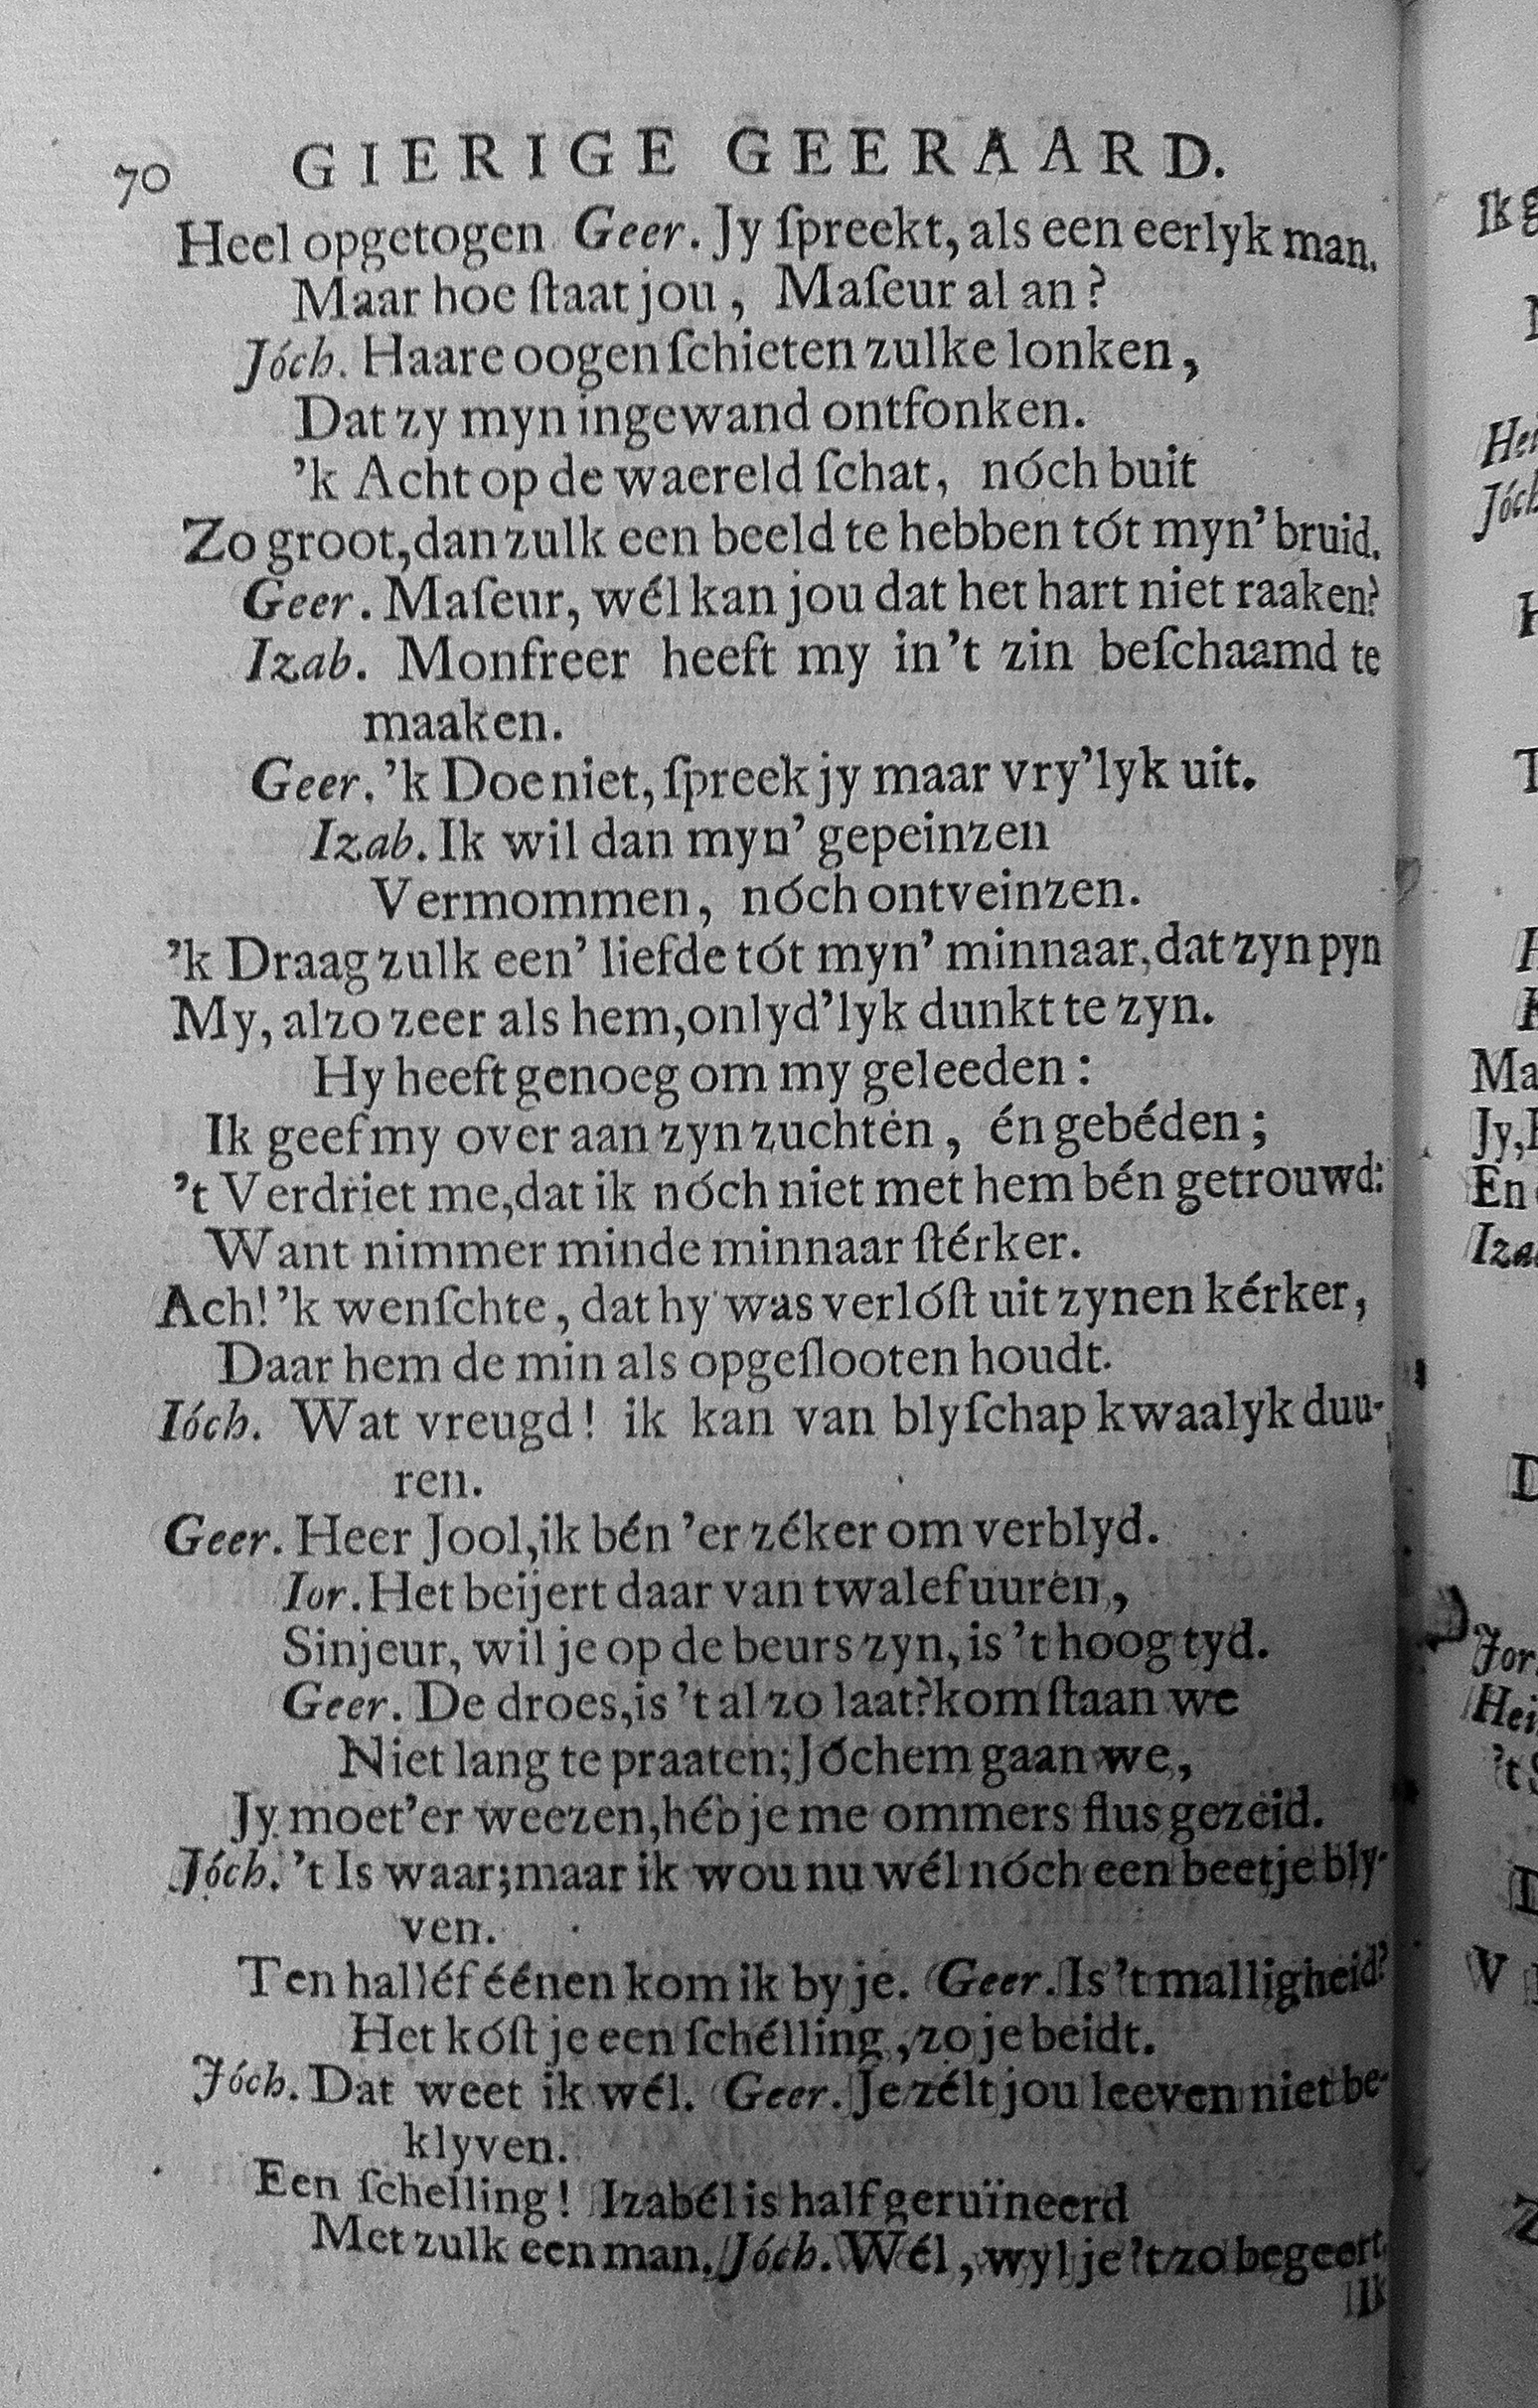 70 GIERIGE GEERAARD.
Heel opgetogen Geer. Jy ſpreekt, als een eerlyk man.
Maar hoe ſtaat jou, Maſeur al an?
Jóch. Haare oogen ſchieten zulke lonken,
Dat zy myn ingewand ontfonken.
'k Acht op de waereld ſchat, nóch buit
Zo groot, dan zulk een beeld te hebben tót myn' bruid.
Geer. Maſeur, wél kan jou dat het hart niet raaken?
Izab. Monfreer heeft my in't zin beſchaamd te
maaken.
Geer. 'k Doe niet, ſpreek jy maar vry'lyk uit.
Izab. Ik wil dan myn' gepeinzen
Vermommen, nóch ontveinzen.
'k Draag zulk een' liefde tót myn' minnaar, dat zyn pyn
My, alzo zeer als hem, onlyd'lyk dunkt te zyn.
Hy heeft genoeg om my geleeden:
Ik geef my over aan zyn zuchten, én gebéden;
't Verdriet me, dat ik nóch niet met hem bén getrouwd:
Want nimmer minde minnaar ſtérker.
Ach! 'k wenſchte, dat hy was verlóſt uit zynen kérker,
Daar hem de min als opgeſlooten houdt.
Ióch. Wat vreugd! ik kan van blyſchap kwaalyk duu-
ren.
Geer. Heer Jool, ik bén 'er zéker om verblyd.
Ior. Het beijert daar van twalef uuren,
Sinjeur, wil je op de beurs zyn, is 't hoog tyd.
Geer. De droes, is 't al zo laat? kom ſtaan we
Niet lang te praaten; Jóchem gaan we,
Jy moet'er weezen, héb je me ommers flus gezeid.
Jóch. 't Is waar; maar ik wou nu wél nóch een beetje bly-
ven.
Ten halléf éénen kom ik by je. Geer. Is 't malligheid?
Het kóſt je een ſchélling, zo je beidt.
Jóch. Dat weet ik wél. Geer. Je zélt jou leeven niet be-
klyven.
Een ſchelling! Izabél is half geruïneerd
Met zulk een man. Jóch. Wél, wyl je 't zo begeert.
Ik